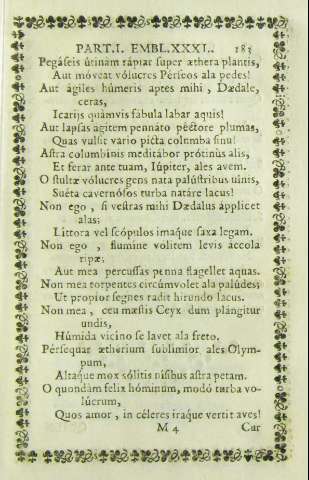 PART.I. EMBL.XXXI.. 183
Pegáseis útinam rápiar super æthera plantis,
Aut móveat vólucres Pérseos ala pedes!
Aut ágiles húmeris aptes mihi, Dædale,
ceras,
Icarijs quámvis fabula labar aquis!
Aut lapsas agitem pennáto péctore plumas,
Quas vulsit vario picta colúmba sinu!
Astra columbinis meditábor prótinùs alis,
Et ferar ante tuam, Iúpiter, ales avem.
O stultæ vólucres gens nata palústribus ulnis,
Suéta cavernósos turba natáre lacus!
Non ego, si vestras mihi Dædalus ápplicet
alas;
Líttora vel scópulos imaque saxa legam.
Non ego, flumine volitem levis accola
ripæ,
Aut mea percussas penna flagellet aquas.
Non mea torpentes circúmvolet ala palúdes;
Ut propior segnes radit hirundo lacus.
Non mea, ceu mæstis Ceyx dum plángitur
undis,
Húmida vicino se lavet ala freto.
Pérsequar ætherium sublimior ales Olym-
pum,
Altáque mox sólitis nísibus astra petam.
O quondàm felix hóminum, modò turba vo-
lúcrum,
Quos amor, in céleres iráque vertit aves!
M 4 Cur